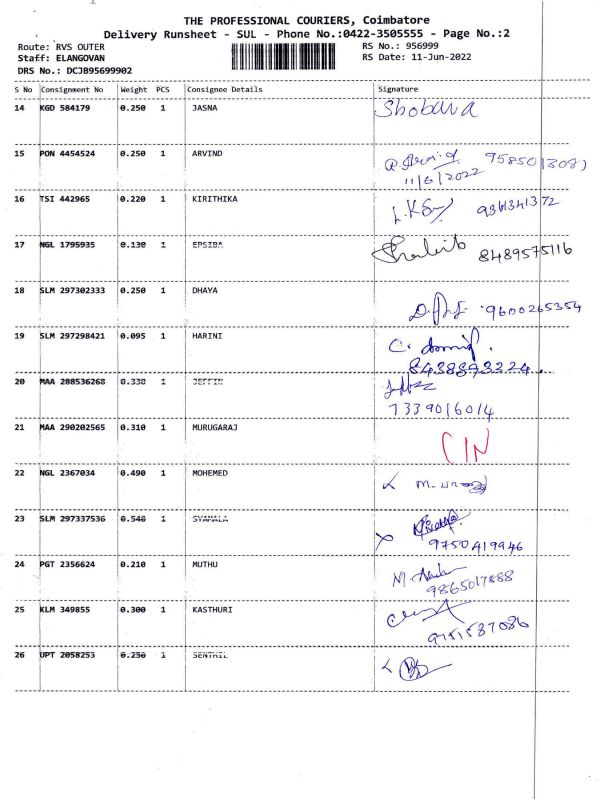 THE PROFESSIONAL COURIERS, Coimbatore
Delivery Runsheet - SUL - Phone No.:0422-3505555 - Page No.:2
Route: RVS OUTER RS No.: 956999
Staff: ELANGOVAN RS Date: 11-Jun-2022
DRS No.: DCJB95699902
S No Consignment No Weight PCS Consignee Details Signature
14 KGD 584179 0.250 1 JASNA Shobana
15 PON 4454524 0.250 1 ARVIND
11/6/2022
16 TSI 442965 0.220 1 KIRITHIKA 9361341372
17 NGL 1795935 0.130 1 EPSIBA 8489575116
18 SLM 297302333 0.250 1 DHAYA 9600265354
19 SLM 297298421 0.095 1 HARINI
8438893224
20 MAA 288536268 0.330 1 JEFFIN
7339016014
21 MAA 290202565 0.310 1 MURUGARAJ CIN
22 NGL 2367034 0.490 1 MOHEMED M.
23 SLM 297337536 0.540 1 SYAMALA
9750419946
24 PGT 2356624 0.210 1 MUTHU
9865017888
25 KLM 349855 0.300 1 KASTHURI
9151587086
26 UPT 2058253 0.250 1 SENTHIL